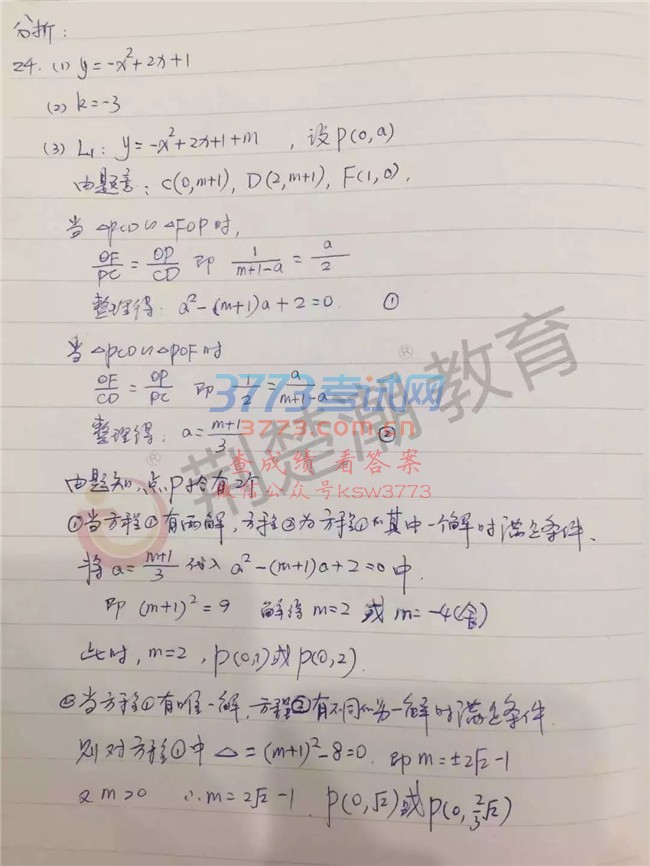 分析:
24. (1) y=-x²+2x+1
(2) k=-3
(3) L₁: y=-x²+2x+1+m , 设P(0,a)
由题意: C(0,m+1), D(2,m+1), F(1,0).
当△PCD∽△FOP时,
OF/PC = OP/CD 即 1/(m+1-a) = a/2
整理得: a²-(m+1)a+2=0. ①
当△PCD∽△POF时
OF/CD = OP/PC 即 1/2 = a/(m+1-a)
整理得: a=(m+1)/3 ②
由题知,点P恰有2个
①当方程①有两解,方程②为方程①的其中一个解时满足条件.
将a=(m+1)/3代入a²-(m+1)a+2=0中.
即 (m+1)²=9 解得m=2 或 m=-4(舍)
此时, m=2, P(0,1)或P(0,2).
②当方程①有唯一解,方程②有不同的另一解时满足条件.
则对方程①中 △=(m+1)²-8=0. 即m=±2√2-1
又m>0 ∴m=2√2-1. P(0,√2)或P(0,2/3√2)
荆楚潮教育
®
®
3773考试网
3773.com.cn
查成绩 看答案
微信公众号ksw3773